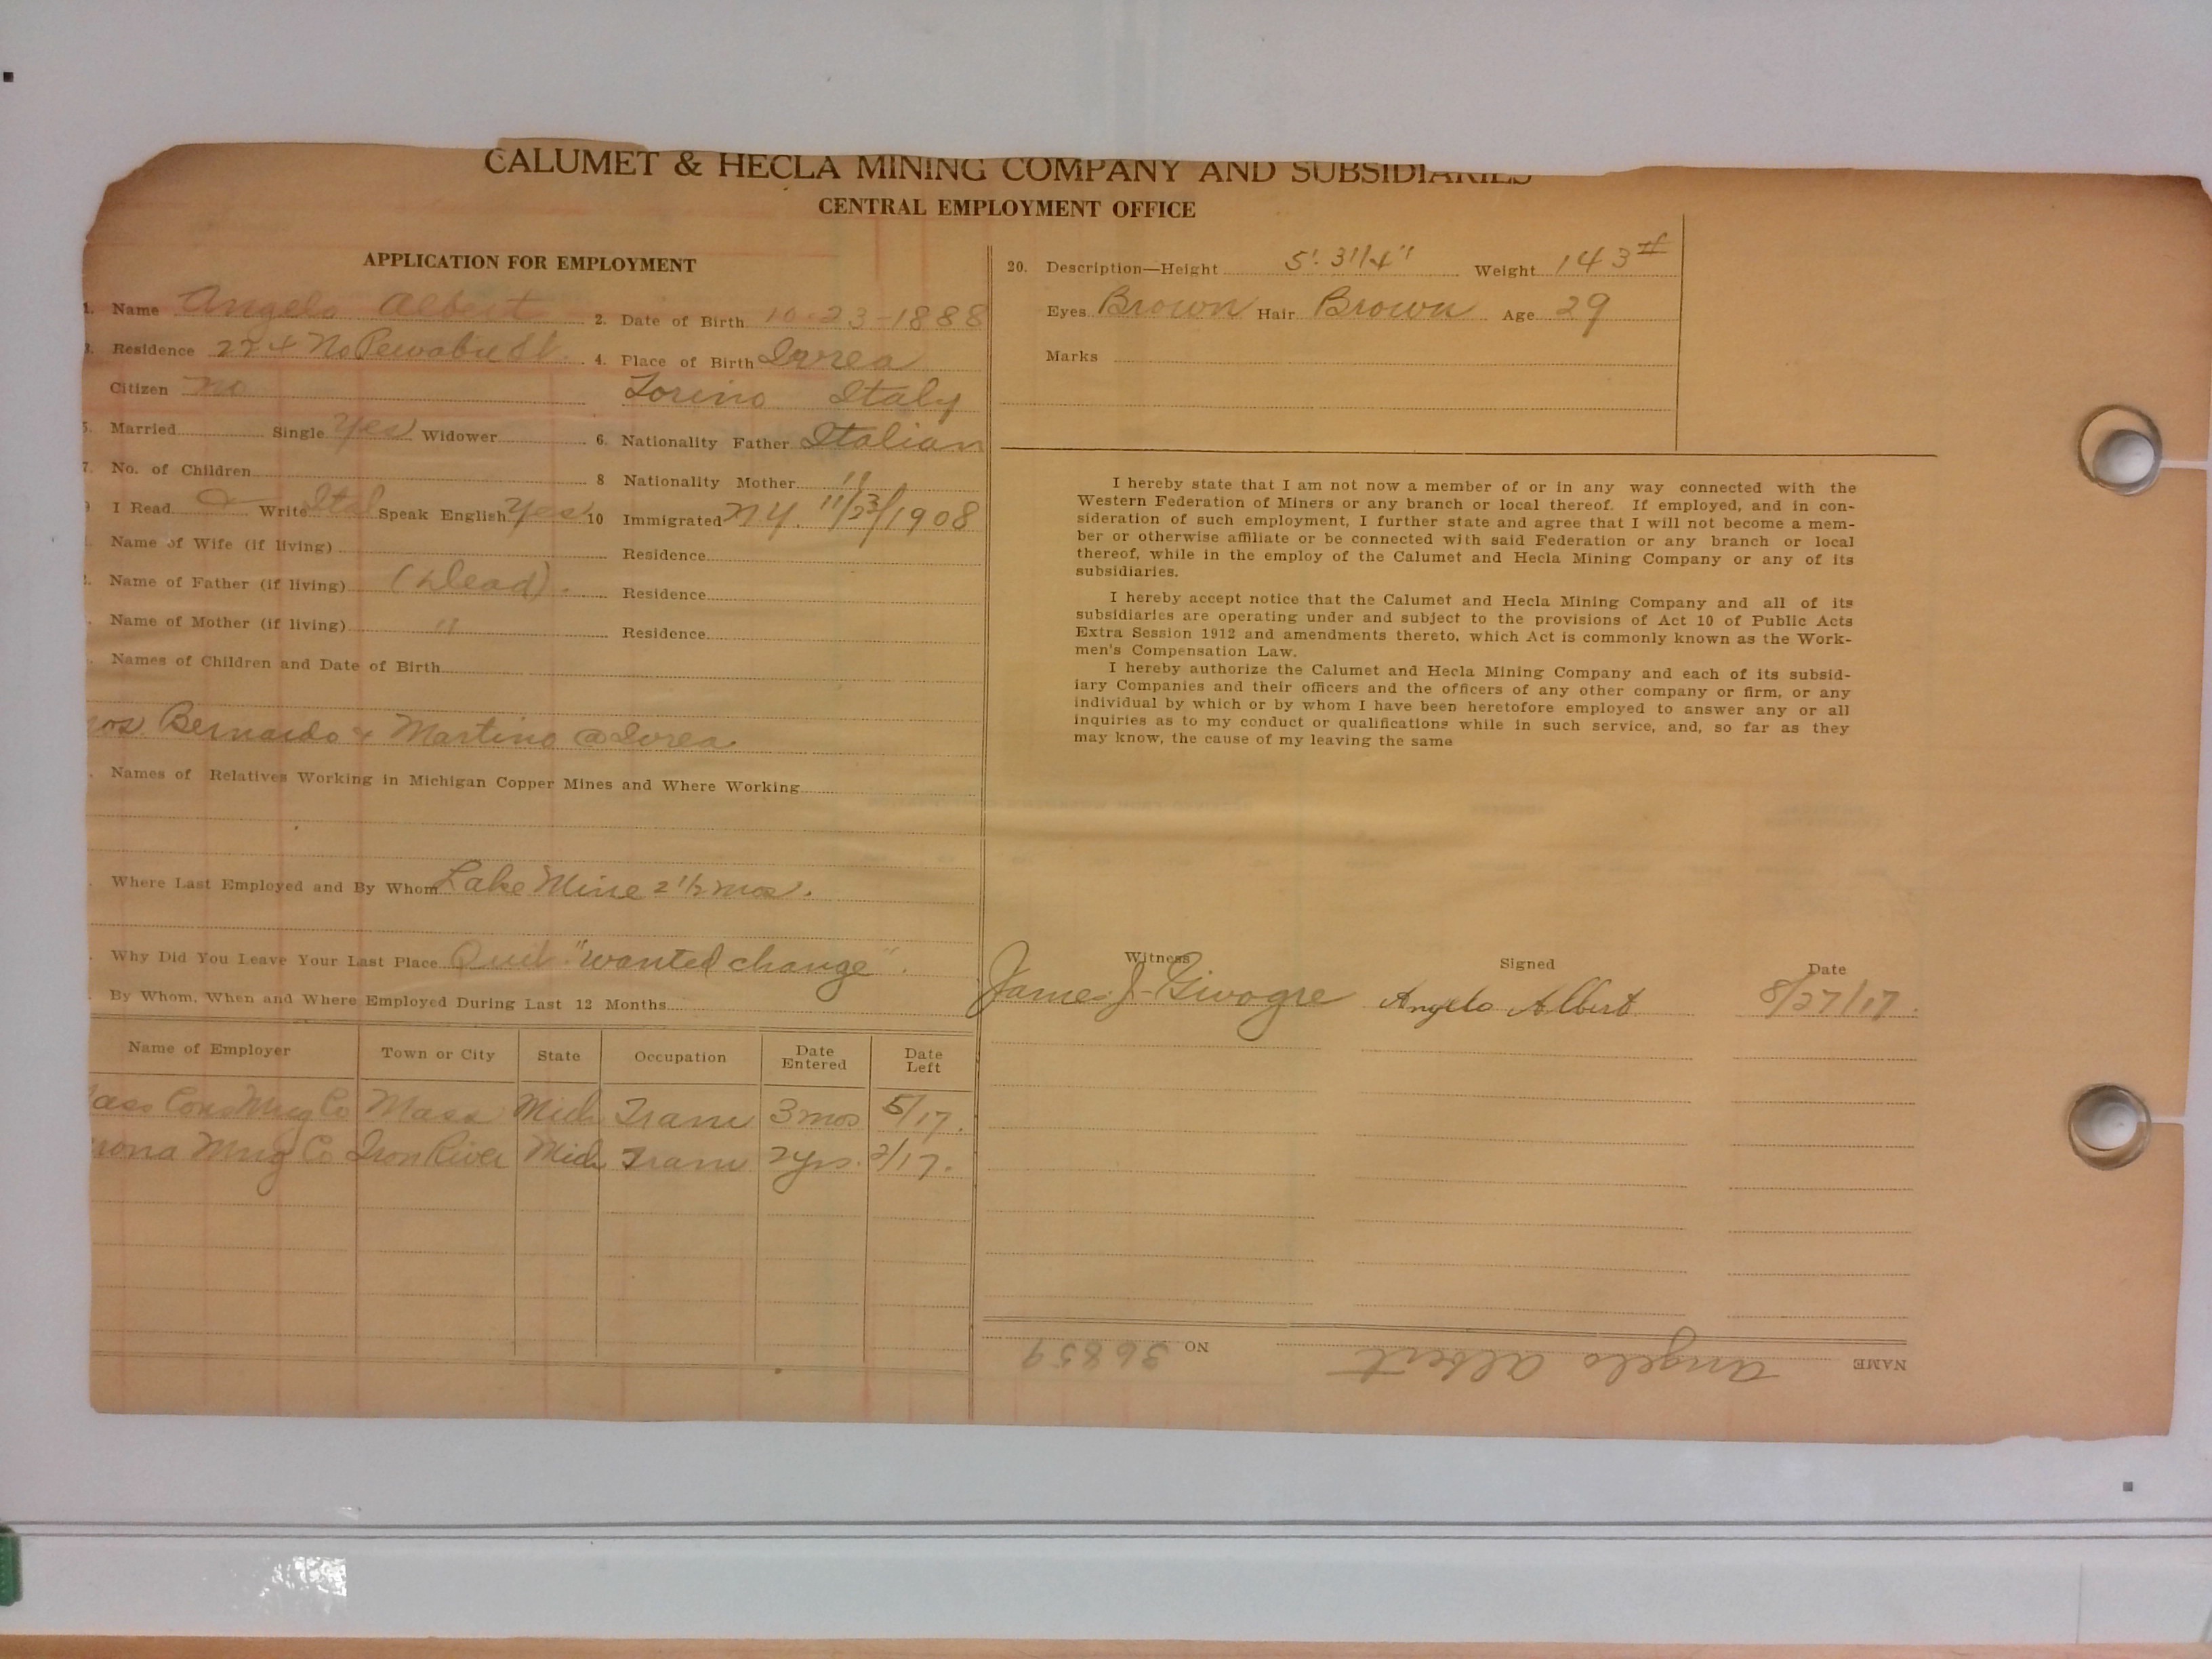 CALUMET & HECLA MINING COMPANY AND SUBSIDIARIES
CENTRAL EMPLOYMENT OFFICE
APPLICATION FOR EMPLOYMENT
1. Name Angelo Albert 2. Date of Birth 10-23-1888
3. Residence 224 No Pewabic St. 4. Place of Birth Ivrea
Citizen no Torino Italy
5. Married Single Yes Widower 6. Nationality Father Italian
7. No. of Children 8 Nationality Mother "
9 I Read & Write Ital Speak English Yes 10 Immigrated N.Y. 11/23/1908
Name of Wife (if living) Residence
Name of Father (if living) (Dead). Residence
Name of Mother (if living) " Residence
Names of Children and Date of Birth
ros. Bernardo & Martino @ Ivrea
Names of Relatives Working in Michigan Copper Mines and Where Working
Where Last Employed and By Whom Lake Mine 2 1/2 mos.
Why Did You Leave Your Last Place Quit "wanted change".
By Whom, When and Where Employed During Last 12 Months
Name of Employer Town or City State Occupation Date Entered Date Left
ass Cons Mng Co Mass Mich Tram 3 mos 5/17.
rona Mng Co Iron River Mich Tram 2 yrs. 2/17.
20. Description—Height 5' 3 1/4" Weight 143 #
Eyes Brown Hair Brown Age 29
Marks
I hereby state that I am not now a member of or in any way connected with the
Western Federation of Miners or any branch or local thereof. If employed, and in con-
sideration of such employment, I further state and agree that I will not become a mem-
ber or otherwise affiliate or be connected with said Federation or any branch or local
thereof, while in the employ of the Calumet and Hecla Mining Company or any of its
subsidiaries.
I hereby accept notice that the Calumet and Hecla Mining Company and all of its
subsidiaries are operating under and subject to the provisions of Act 10 of Public Acts
Extra Session 1912 and amendments thereto, which Act is commonly known as the Work-
men's Compensation Law.
I hereby authorize the Calumet and Hecla Mining Company and each of its subsid-
iary Companies and their officers and the officers of any other company or firm, or any
individual by which or by whom I have been heretofore employed to answer any or all
inquiries as to my conduct or qualifications while in such service, and, so far as they
may know, the cause of my leaving the same
Witness Signed Date
James J. Givogre Angelo Albert 8/27/17.
NAME Angelo Albert NO 36859